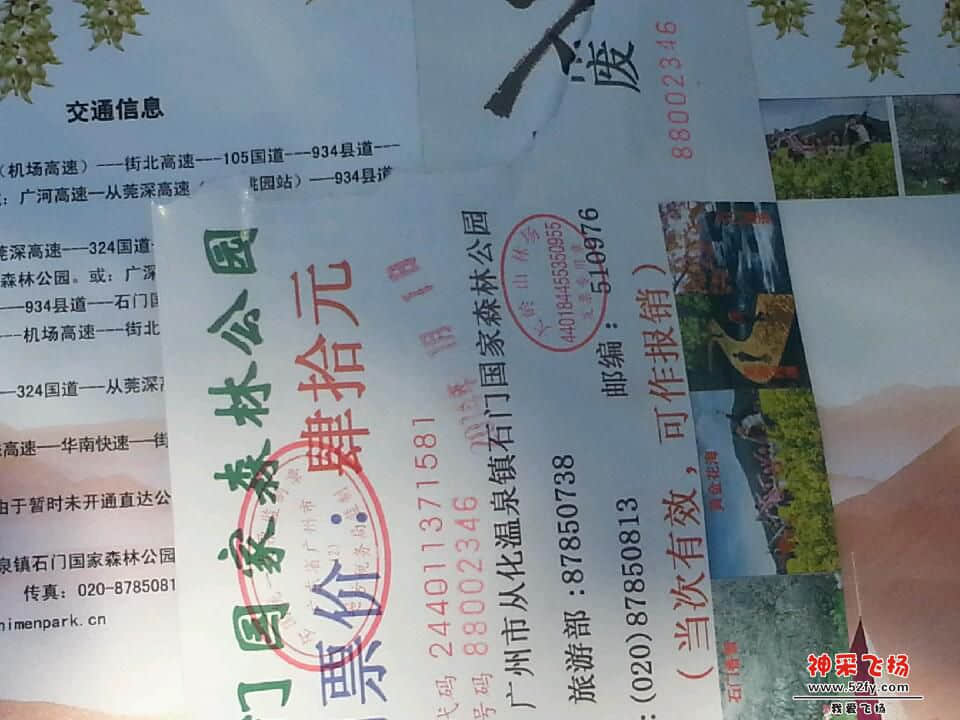 交通信息
（机场高速）---街北高速---105国道---934县道---
：广河高速—从莞深高速（
桃园站）---934县道
莞深高速---324国道
森林公园。或：广深
---934县道---石门国
---机场高速---街北
---324国道---从莞深高
高速---华南快速---街
由于暂时未开通直达公
泉镇石门国家森林公园
传真：020-8785081
himenpark.cn
门国家森林公园
票价：肆拾元
代码 244011371581
号码 88002346
广州市从化温泉镇石门国家森林公园
旅游部:87850738
邮编：510976
:(020)87850813
（当次有效，可作报销）
440184455350955
废
88002346
黄金花海
石门香雪
神采飞扬
www.52fy.com
我爱飞扬